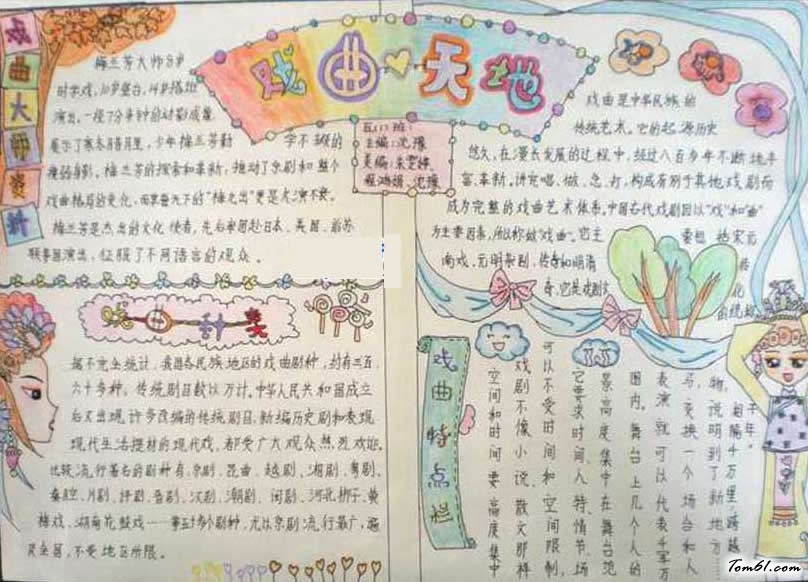 戏曲天地
戏曲大师资料
梅兰芳大师8岁
时学戏，10岁登台，14岁搭班
演出。一段7分钟的动影成像，
展示了寒来暑往里，少年梅兰芳勤
学不辍的
瘦弱身影，梅兰芳的探索和革新，推动了京剧和整个
戏曲格局的变化，而享誉天下的“梅之出”更是
梅兰芳是杰出的文化使者，先后率团赴日本、美国、前苏
联等国演出，征服了不同语言的观众。
五(1)班：
主编：沈臻
美编：朱雯婷、
程鸿娟、沈臻
戏曲是中华民族的
传统艺术，它的起源历史
悠久，在漫长发展的过程中，经过八百多年不断地丰
富、革新，讲究唱、做、念、打，构成有别于其他戏剧而
成为完整的戏曲艺术体系。中国古代戏剧因以“戏”和“曲”
为主要因素，所以称做“戏曲”。它主
要包括宋元
南戏、元明杂剧、传奇和明清
传奇，它是戏剧文
化的统
戏曲种类
据不完全统计，我国各民族地区的戏曲剧种，约有三百
六十多种，传统剧目数以万计。中华人民共和国成立
后又出现许多改编的传统剧目，新编历史剧和表现
现代生活提材的现代戏，都受广大观众热烈欢迎。
比较流行著名的剧种有：京剧、昆曲、越剧、湘剧、粤剧、
秦腔、川剧、评剧、晋剧、汉剧、潮剧、闽剧、河北梆子、黄
梅戏、湖南花鼓戏……等五十多个剧种，尤以京剧流行最广，遍
及全国，不受地区所限。
戏曲特点栏
空间和时间要高度集中
戏剧不像小说、散文那样
可以不受时间和空间限制，
它要求时间、人、情节、场
景高度集中在舞台范
围内。舞台上几个人的
表演就可以代表千军万
马，变换一个场台和人
物，说明到了新地方……
相隔千万里，跨越
千年。
Tom61.com